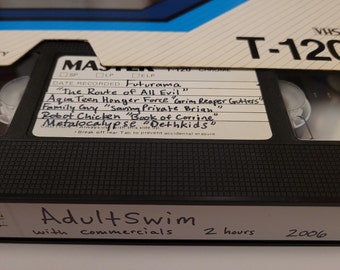 VHS
T-120
MASTER T-120 CHROME
SP LP ELP
DATE RECORDED Futurama
"The Route of All Evil"
Aqua Teen Hunger Force "Grim Reaper Gutters"
Family Guy "Saving Private Brian"
Robot Chicken "Book of Corrine"
Metalocalypse "Dethkids"
Break off Tear Tab to prevent accidental erasure
AdultSwim
with commercials 2 hours 2006